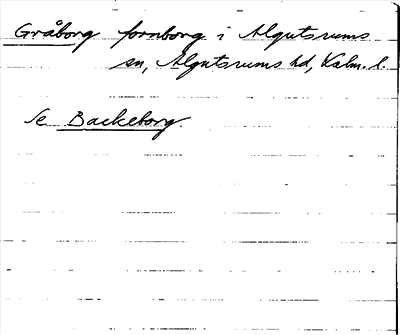 Gråborg fornborg i Algutsrums
sn, Algutsrums hd, Kalm. l.
Se Backeborg.